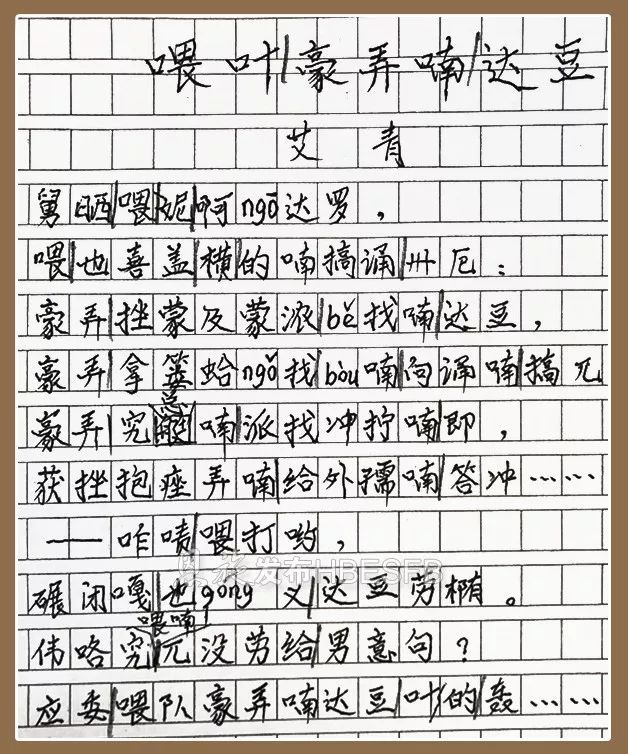 喂叶豪弄喃达豆
艾 青
舅晒喂妮啊ngō达罗，
喂也喜盖横的喃搞诵卅厄：
豪弄挫蒙及蒙浓bě找喃达豆，
豪弄拿篓蛤ngǒ找bòu喃向诵喃搞兀
豪弄究 喃派找冲拧喃即，
获挫抱痤弄喃给外孺喃答冲……
——咋啧喂打哟，
恩施发布HBESFB
碾闭嘎也gòng义达豆劳楠。
喂喃
伟咯究兀没劳给男意句？
应委喂队豪弄喃达豆叶的轰……